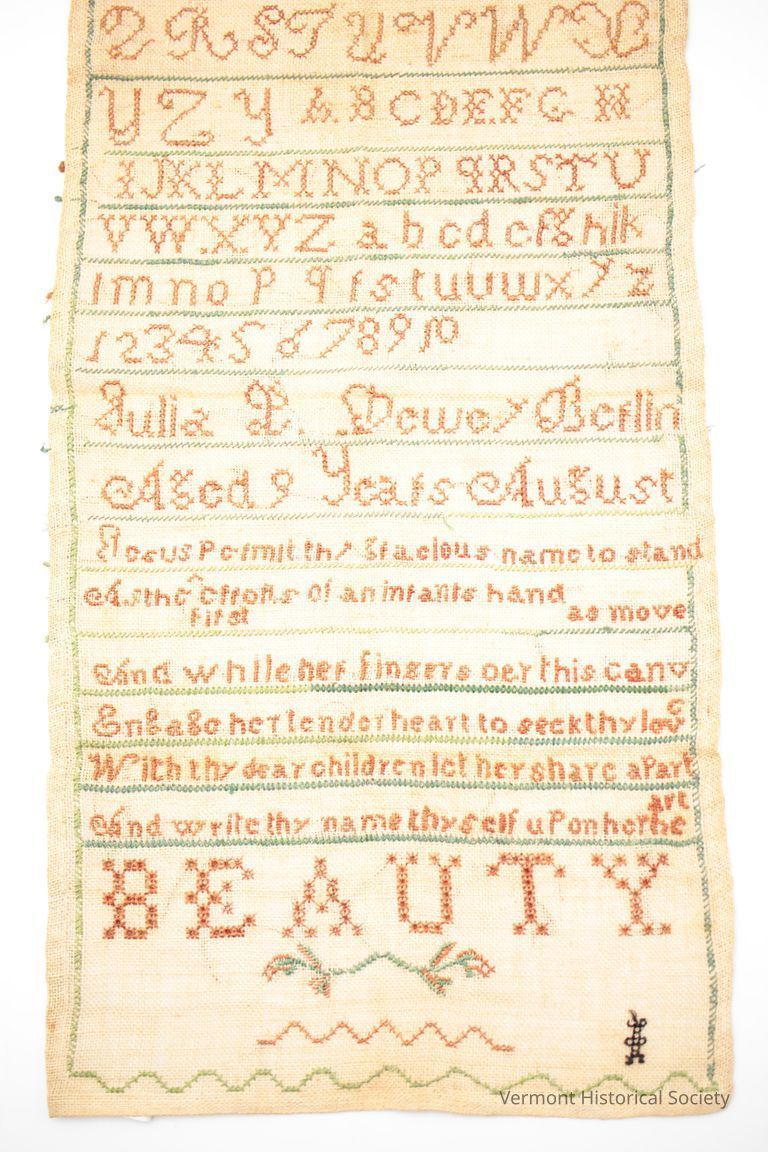 Q R S T U V W X
Y Z Y A B C D E F G H
I J K L M N O P Q R S T U
V W X Y Z a b c d e f g h i k
l m n o p q r s t u v w x y z
1 2 3 4 5 6 7 8 9 10
Julia P. Dewey Berlin
Aged 9 Years August
Jesus Permit thy Gracious name to stand
As the ^ efforts of an infants hand
first
as move
And while her fingers oer this canv
Engage her tender heart to seek thy love
With thy dear children let her share a Part
And write thy name thyself uPon her he
art
BEAUTY
Vermont Historical Society